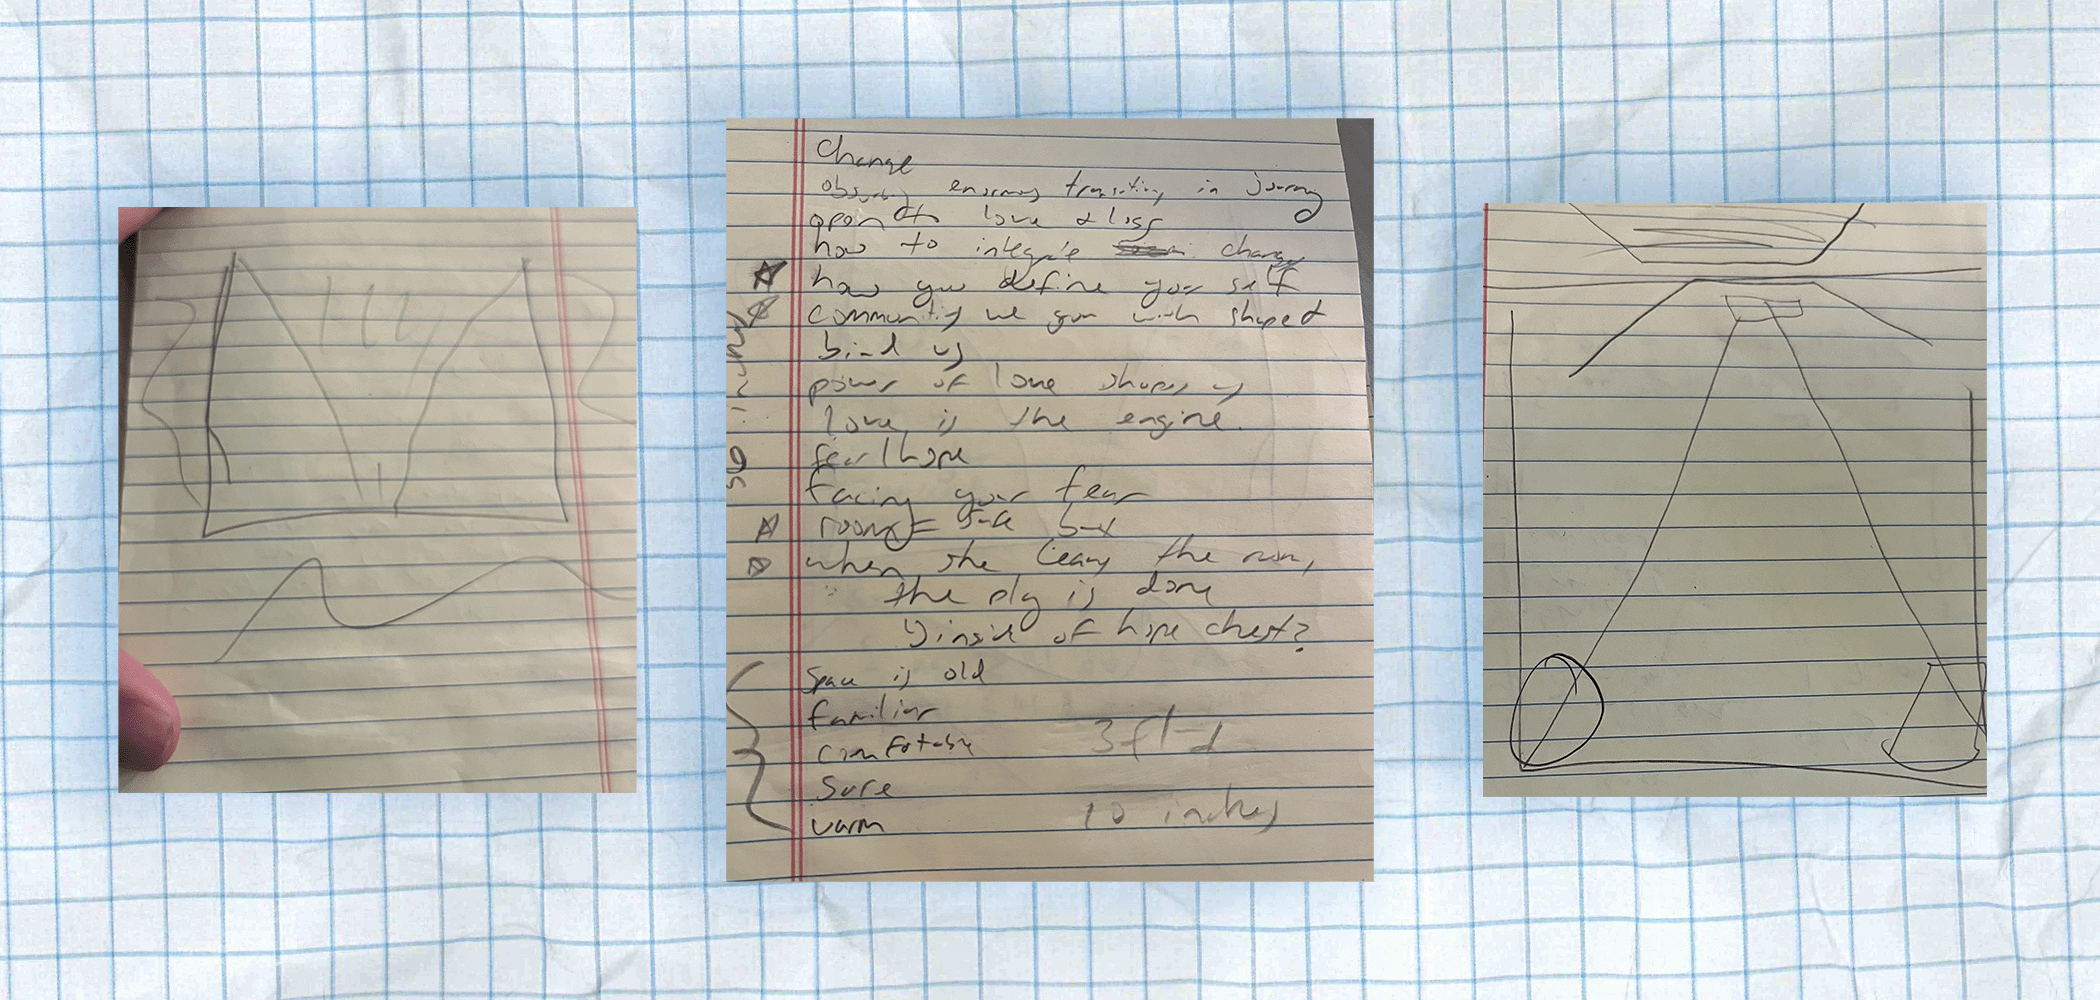 Change
enormous transition in journey
open to love & loss
how to integrate change
how you define your self
community we grow with shaped
bind us
power of love shapes us
love is the engine.
fear/hope
facing your fear
room =
when she leaves the room,
the play is done
inside of hope chest?
Space is old
familiar
comfortable
Sure
warm
10 inches